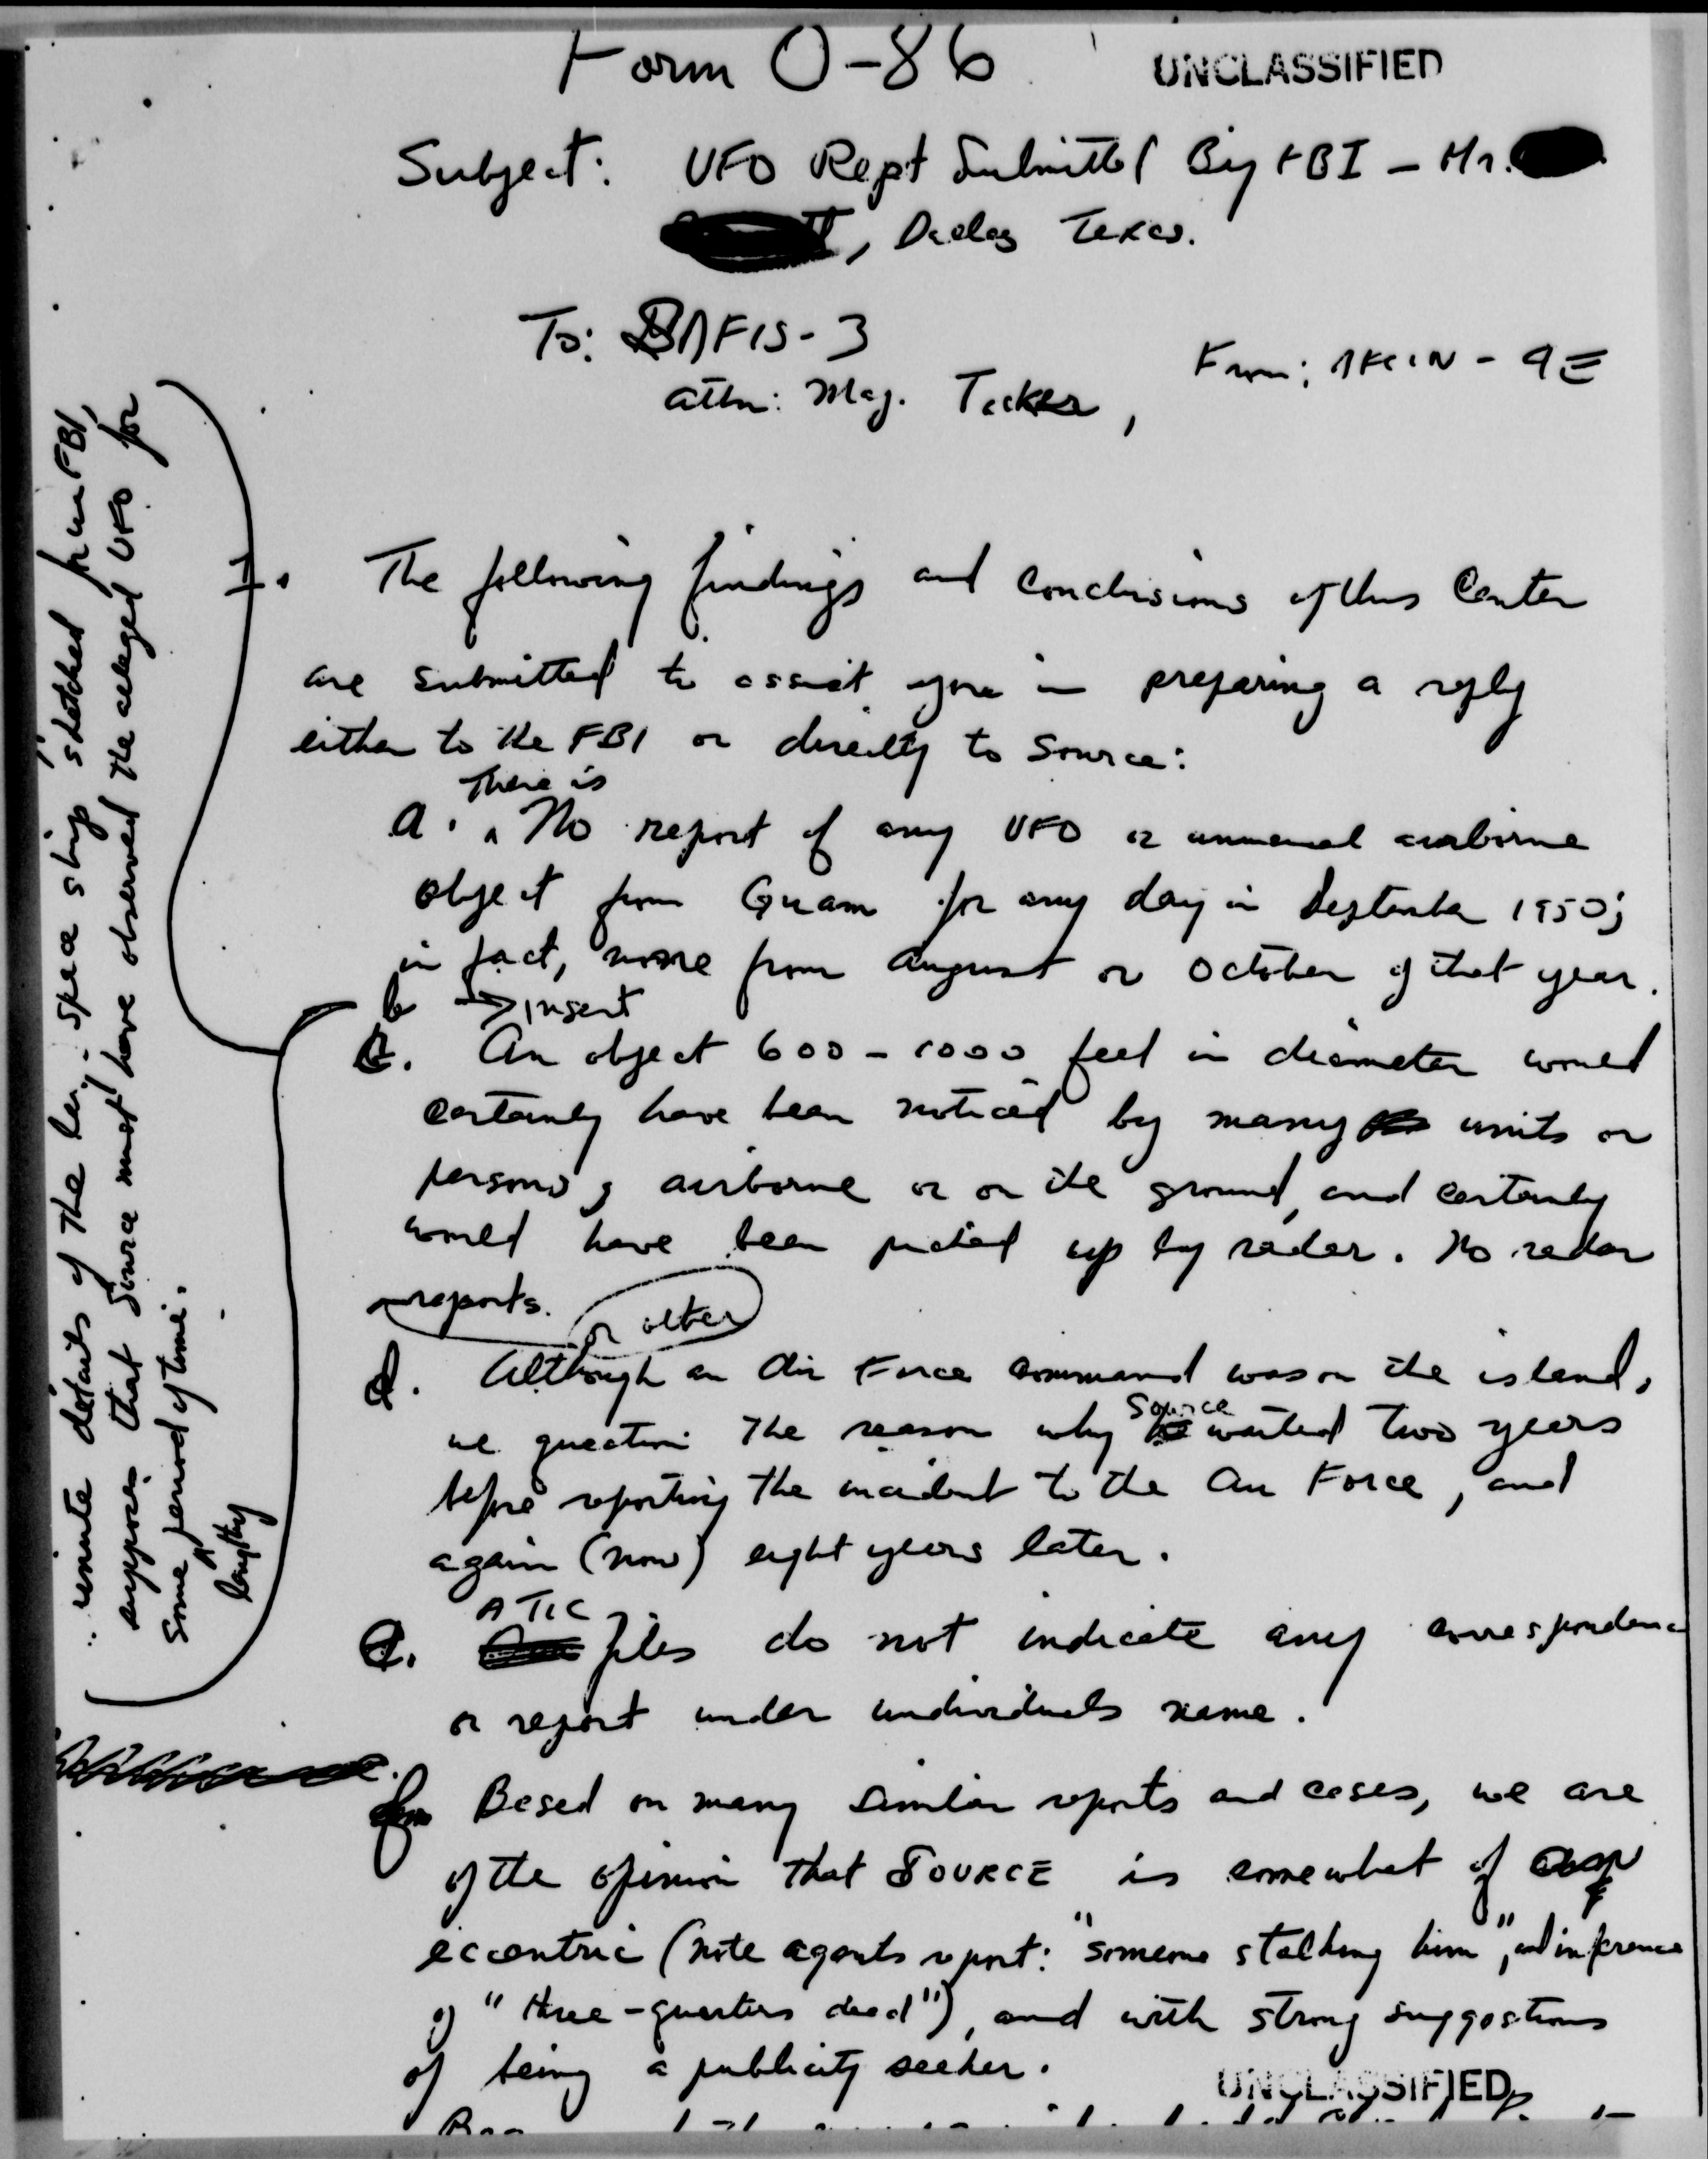 Form 0-86
UNCLASSIFIED
Subject: UFO Rept Submitted By FBI - Mr.
, Dallas Texas.
To: AFIS-3
From: AFCIN - 4E
Attn: Maj. Tacker,
1. The following findings and conclusions of this Center
are submitted to assist you in preparing a reply
either to the FBI or directly to Source:
There is
a. No report of any UFO or unusual airborne
object from Guam for any day in September 1950;
in fact, none from August or October of that year.
b → insert
c. An object 600-1000 feet in diameter would
certainly have been noticed by many units or
persons, airborne or on the ground, and certainly
would have been picked up by radar. No radar
reports.
or other
d. Although an Air Force command was on the island,
Source
we question the reason why waited two years
before reporting the incident to the Air Force, and
again (now) eight years later.
ATIC
e. files do not indicate any correspondence
or report under individuals name.
f. Based on many similar reports and cases, we are
of the opinion that SOURCE is somewhat of an
eccentric (note agents report: "someone stalking him", and inference
of "three-quarters dead"), and with strong suggestions
of being a publicity seeker.
UNCLASSIFIED
minute details of the space ship sketched FBI,
supposes that Source must have observed the alleged UFO for
some period of time.
lengthy